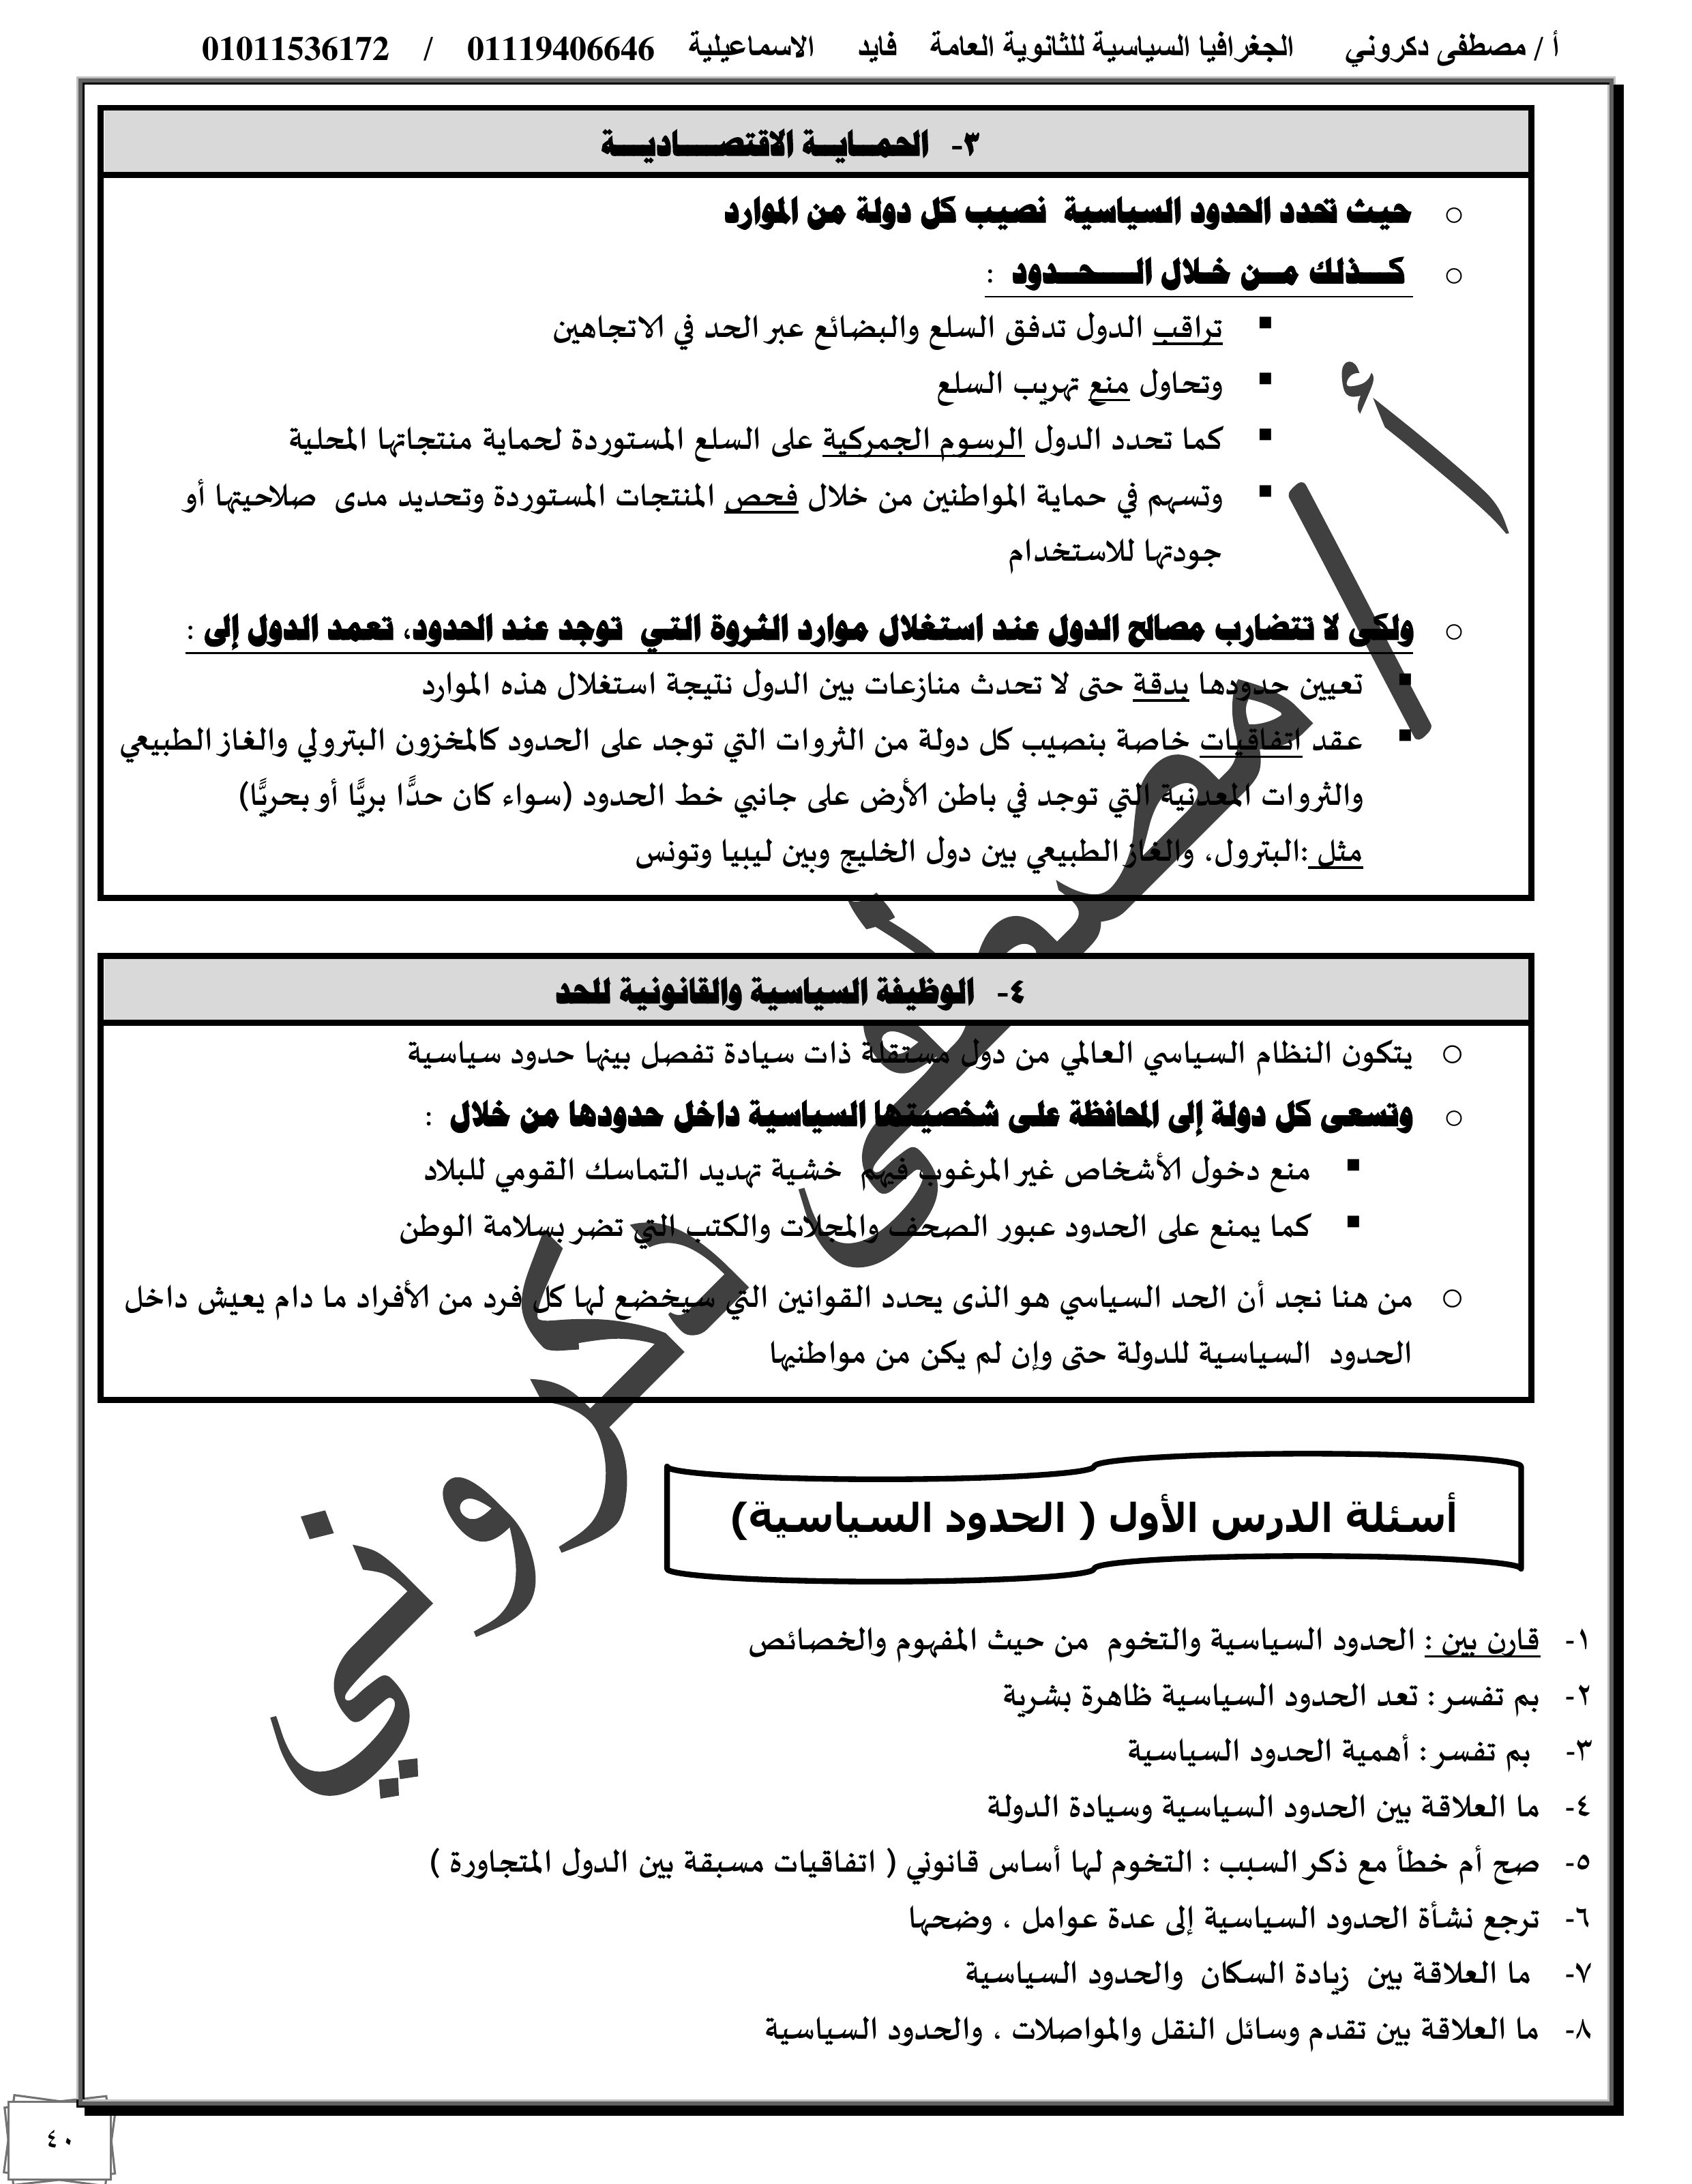 أ / مصطفى دكروني الجغرافيا السياسية للثانوية العامة فايد الاسماعيلية 01119406646 / 01011536172
٣- الحمـــايـــة الاقتصـــــاديـــــة
حيث تحدد الحدود السياسية نصيب كل دولة من الموارد
كـــذلك مـــن خـلال الـــــحـــدود :
تراقب الدول تدفق السلع والبضائع عبر الحد في الاتجاهين
وتحاول منع تهريب السلع
كما تحدد الدول الرسوم الجمركية على السلع المستوردة لحماية منتجاتها المحلية
وتسهم في حماية المواطنين من خلال فحص المنتجات المستوردة وتحديد مدى صلاحيتها أو
جودتها للاستخدام
ولكى لا تتضارب مصالح الدول عند استغلال موارد الثروة التي توجد عند الحدود، تعمد الدول إلى :
تعيين حدودها بدقة حتى لا تحدث منازعات بين الدول نتيجة استغلال هذه الموارد
عقد اتفاقيات خاصة بنصيب كل دولة من الثروات التي توجد على الحدود كالمخزون البترولي والغاز الطبيعي
والثروات المعدنية التي توجد في باطن الأرض على جانبي خط الحدود (سواء كان حدًّا بريًّا أو بحريًّا)
مثل :البترول، والغاز الطبيعي بين دول الخليج وبين ليبيا وتونس
٤- الوظيفة السياسية والقانونية للحد
يتكون النظام السياسي العالمي من دول مستقلة ذات سيادة تفصل بينها حدود سياسية
وتسعى كل دولة إلى المحافظة على شخصيتها السياسية داخل حدودها من خلال :
منع دخول الأشخاص غير المرغوب فيهم خشية تهديد التماسك القومي للبلاد
كما يمنع على الحدود عبور الصحف والمجلات والكتب التي تضر بسلامة الوطن
من هنا نجد أن الحد السياسي هو الذى يحدد القوانين التي سيخضع لها كل فرد من الأفراد ما دام يعيش داخل
الحدود السياسية للدولة حتى وإن لم يكن من مواطنيها
أ / مصطفى دكروني
أسئلة الدرس الأول ( الحدود السياسية)
١- قارن بين : الحدود السياسية والتخوم من حيث المفهوم والخصائص
٢- بم تفسر : تعد الحدود السياسية ظاهرة بشرية
٣- بم تفسر : أهمية الحدود السياسية
٤- ما العلاقة بين الحدود السياسية وسيادة الدولة
٥- صح أم خطأ مع ذكر السبب : التخوم لها أساس قانوني ( اتفاقيات مسبقة بين الدول المتجاورة )
٦- ترجع نشأة الحدود السياسية إلى عدة عوامل ، وضحها
٧- ما العلاقة بين زيادة السكان والحدود السياسية
٨- ما العلاقة بين تقدم وسائل النقل والمواصلات ، والحدود السياسية
٤٠